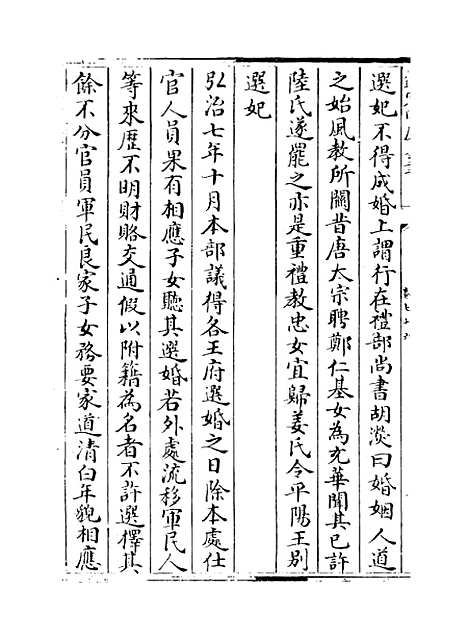 選妃不得成婚上謂行在禮部尚書胡濙曰婚姻人道
之始風教所關昔唐太宗聘鄭仁基女為充華聞其已許
陸氏遂罷之亦是重禮教忠女宜歸姜氏令平陽王别
選妃
弘治七年十月本部議得各王府選婚之日除本處仕
官人員果有相應子女聽其選婚若外處流移軍民人
等來歷不明財賂交通假以附籍為名者不許選擇其
餘不分官員軍民良家子女務要家道清白年貌相應